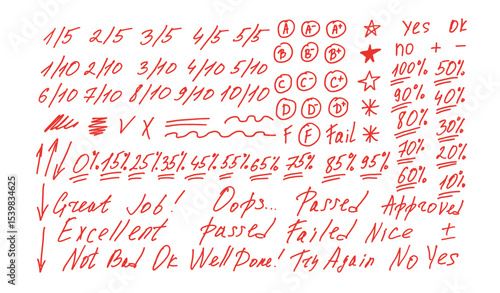 1/5 2/5 3/5 4/5 5/5 A A- A+ yes OK
1/10 2/10 3/10 4/10 5/10 B B- B+ no + -
6/10 7/10 8/10 9/10 10/10 C C- C+ 100% 50%
D D- D+ 90% 40%
V X F F Fail 80% 30%
70% 20%
0% 15% 25% 35% 45% 55% 65% 75% 85% 95% 60% 10%
Great Job! Oops... Passed Approved
Excellent passed Failed Nice ±
Not Bad Ok Well Done! Try Again No Yes
Adobe Stock | #1539834625